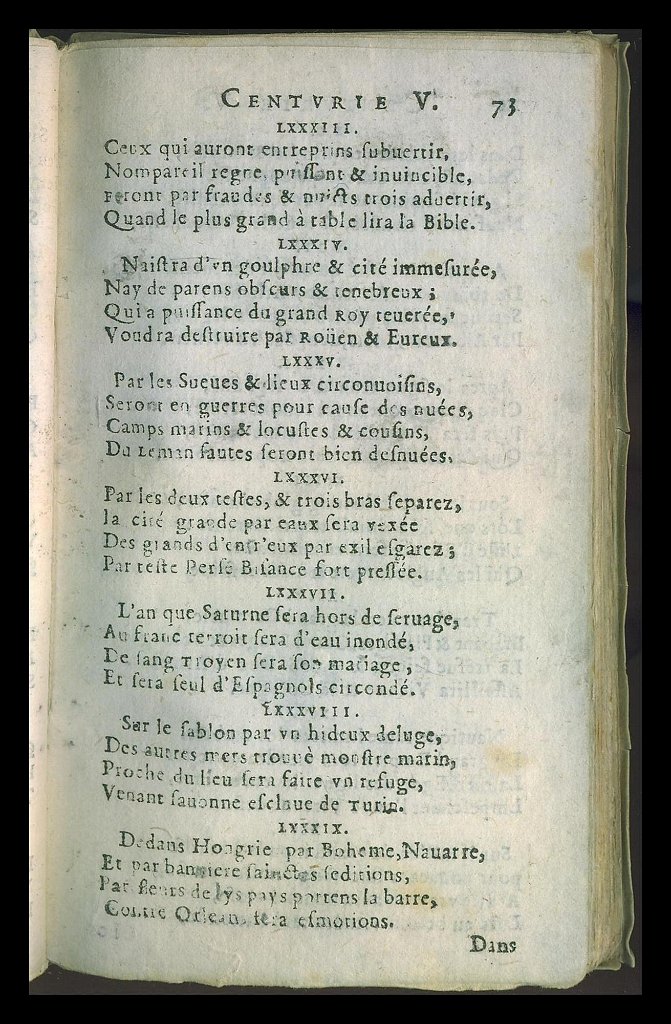 CENTVRIE V. 73
LXXXIII.
Ceux qui auront entreprins ſubuertir,
Nompareil regne, puiſſant & inuincible,
Feront par fraudes & nuicts trois aduertir,
Quand le plus grand à table lira la Bible.
LXXXIV.
Naiſtra d'vn goulphre & cité immeſurée,
Nay de parens obſcurs & tenebreux ;
Qui a puiſſance du grand Roy reuerée,
Voudra deſtruire par Roüen & Eureux.
LXXXV.
Par les Sueues & lieux circonuoiſins,
Seront en guerres pour cauſe des nuées,
Camps marins & locuſtes & couſins,
Du Leman fautes ſeront bien deſnuées.
LXXXVI.
Par les deux teſtes, & trois bras ſeparez,
la cité grande par eaux ſera vexée
Des grands d'entr'eux par exil eſgarez ;
Par teſte Perſe Biſance fort preſſée.
LXXXVII.
L'an que Saturne ſera hors de ſeruage,
Au franc terroit ſera d'eau inondé,
De ſang Troyen ſera ſon mariage ;
Et ſera ſeul d'Eſpagnols circondé.
LXXXVIII.
Sur le ſablon par vn hideux deluge,
Des autres mers trouuè monſtre marin,
Proche du lieu ſera faite vn refuge,
Venant ſauonne eſclaue de Turin.
LXXXIX.
Dedans Hongrie par Boheme, Nauarre,
Et par banniere ſainctes ſeditions,
Par fleurs de lys pays portens la barre,
Contre Orleans ſera eſmotions.
Dans